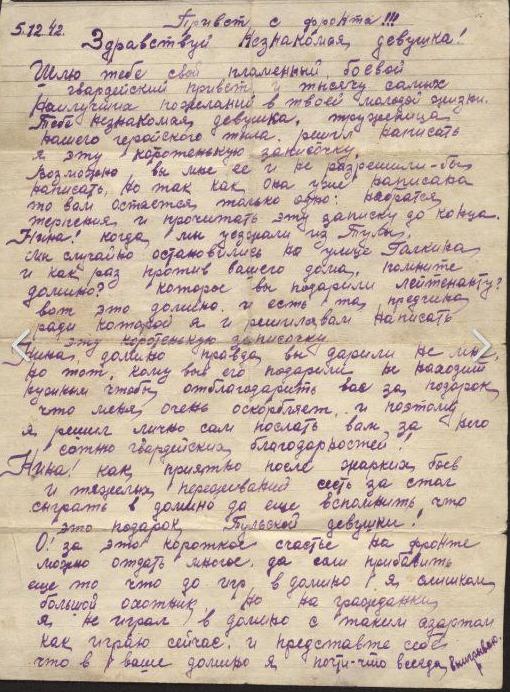 5.12.42. Привет с фронта!!!
Здравствуй незнакомая девушка!
Шлю тебе свой пламенный, боевой
гвардейский привет и тысячу самых
наилучших пожеланий в твоей молодой жизни.
Тебе незнакомая девушка, труженица
нашего геройского тыла. решил написать
я эту коротенькую записочку.
Возможно вы мне её и не разрешили-бы
написать, но так как она уже написана
то вам остаётся только одно: набратся
терпения и прочитать эту записку до конца.
Нина! когда мы уезжали из Тулы,
мы случайно остановились на улице Галкина
и как раз против вашего дома, помните
домино? которое вы подарили лейтенанту?
вот это домино. и есть та, причина
ради которой я и решил вам написать
эту коротенькую записочку
Нина, домино правда, вы дарили не мне,
но тот, кому вы его подарили не находит
нужным чтобы отблагодарить вас за подарок,
что меня очень оскорбляет, и поэтому
я решил лично сам послать вам за него
сотню гвардейских благодарностей!
Нина! как приятно после жарких боёв
и тяжёлых переживаний сесть за стол
сыграть в домино да ещё вспомнить что
это подарок Тульской девушки!
О! за это короткое счастье на фронте
можно отдать многое, да ещё прибавить
ещё то что до игр в домино я слишком
большой охотник, но на гражданке
я не играл в домино с таким азартом
как играю сейчас. и представте себе
что в ваше домино я почти-что всегда выигрываю.